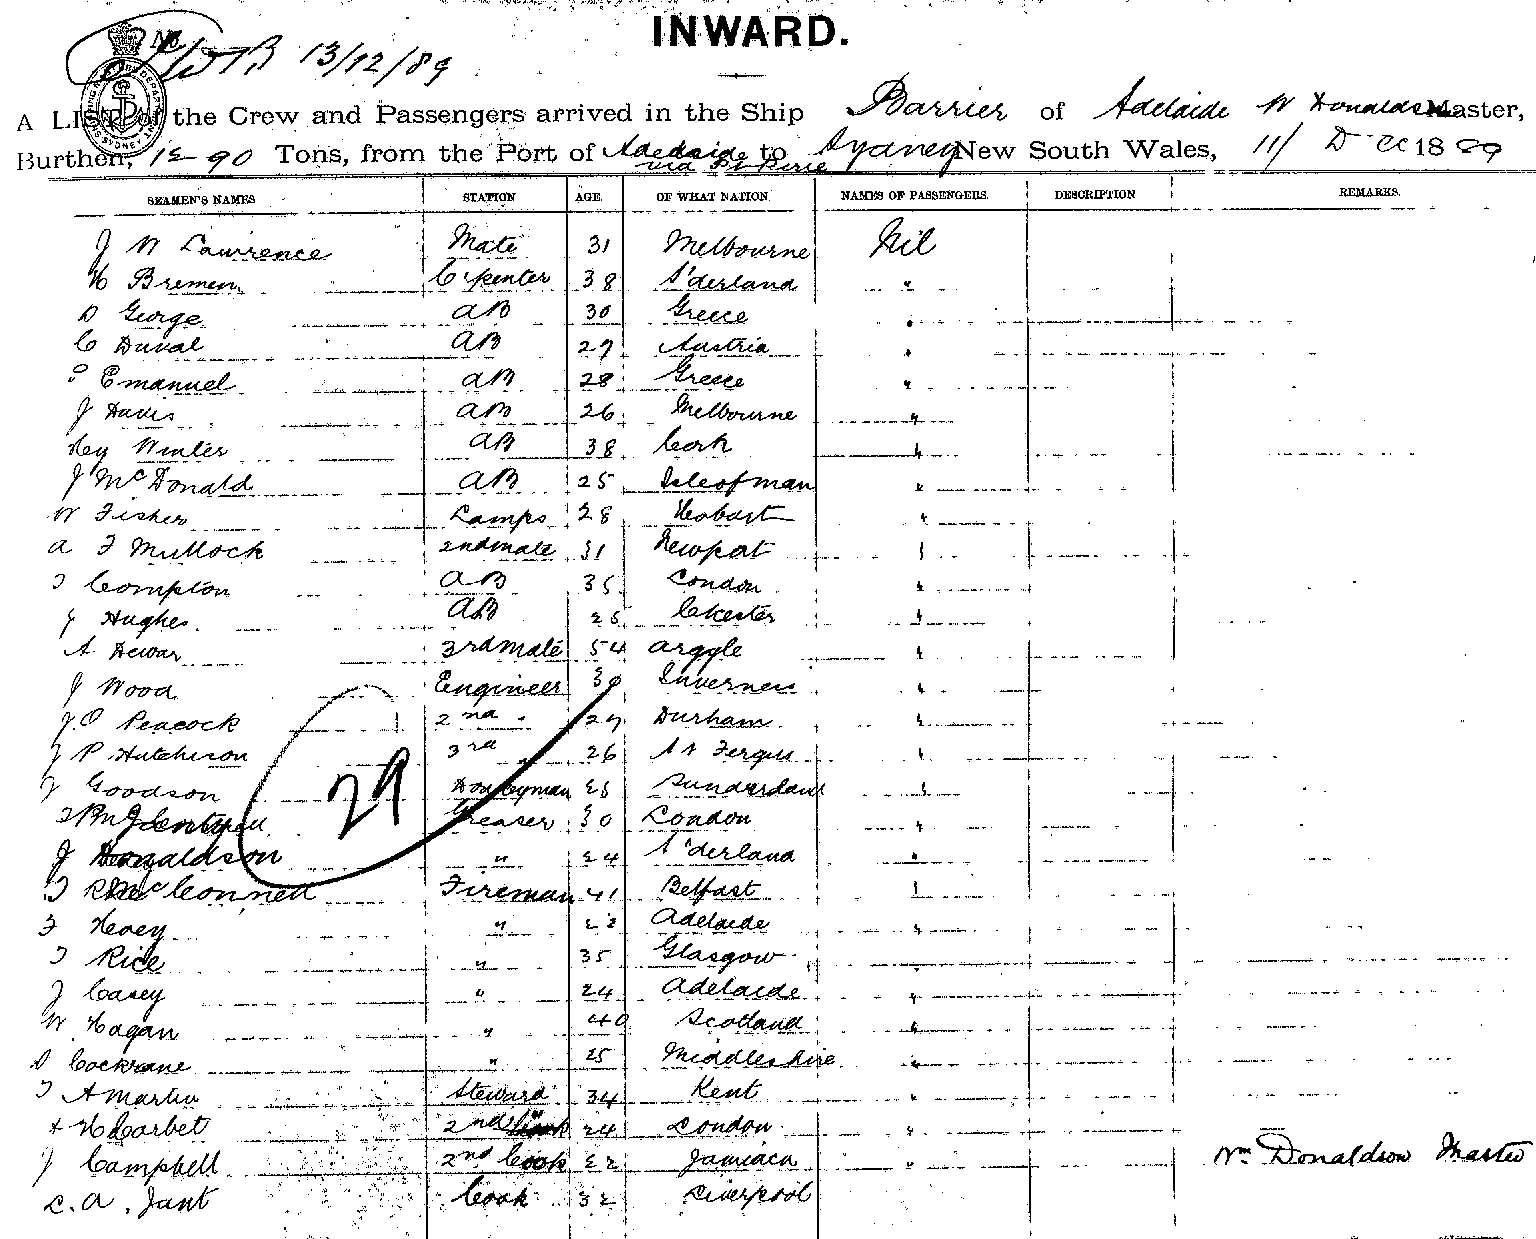 INWARD.
No. 13/12/89
A LIST of the Crew and Passengers arrived in the Ship Barrier of Adelaide W Donaldson Master,
Burthen, 1290 Tons, from the Port of Adelaide to Sydney New South Wales, 11/ Dec 1889
via Pt Pirie
SEAMEN'S NAMES STATION AGE. OF WHAT NATION. NAMES OF PASSENGERS. DESCRIPTION REMARKS.
J W Lawrence Mate 31 Melbourne Nil
H Bremen Carpenter 38 S'derland "
D George AB 30 Greece "
C Duval AB 27 Austria "
Emanuel AB 28 Greece "
J Davis AB 26 Melbourne "
Hy Winter AB 38 Cork "
J McDonald AB 25 Isle of man "
W Fisher Lamps 28 Hobart "
A F Mullock 2nd mate 31 Newport "
T Compton AB 35 London "
J Hughes AB 25 Chester "
A Dewar 3rd mate 54 Argyle "
J Wood Engineer 30 Inverness "
J O Peacock 2nd " 27 Durham "
J P Hutchison 3rd " 26 St Fergus "
J Goodson Donkeyman 25 Sunderland "
Greaser 30 London "
J Donaldson " 24 S'derland "
T McConnell Fireman 41 Belfast "
F Hoey " 22 Adelaide "
T Rice " 35 Glasgow "
J Casey " 24 Adelaide "
W Hagan " 40 Scotland "
D Cockrane " 25 Middleshire "
T A Martin Steward 34 Kent "
H Corbet 2nd " 24 London "
J Campbell 2nd Cook 22 Jamiaca " Wm Donaldson Master
C. A. Jant Cook 32 Liverpool
29